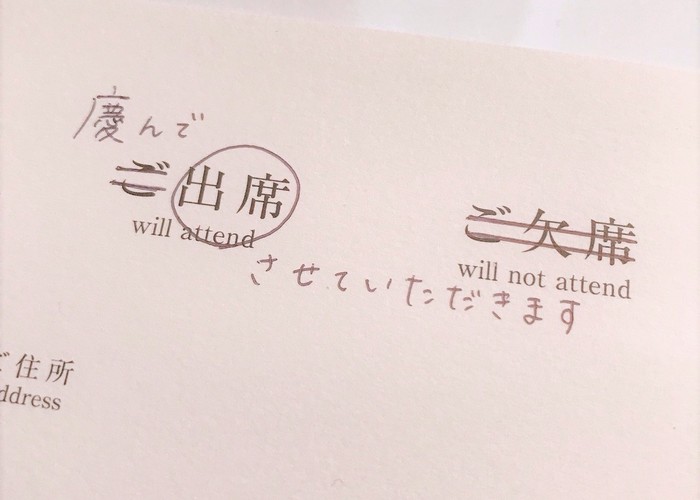 慶んで
ご出席
will attend
ご欠席
will not attend
させていただきます
ご住所
ddress